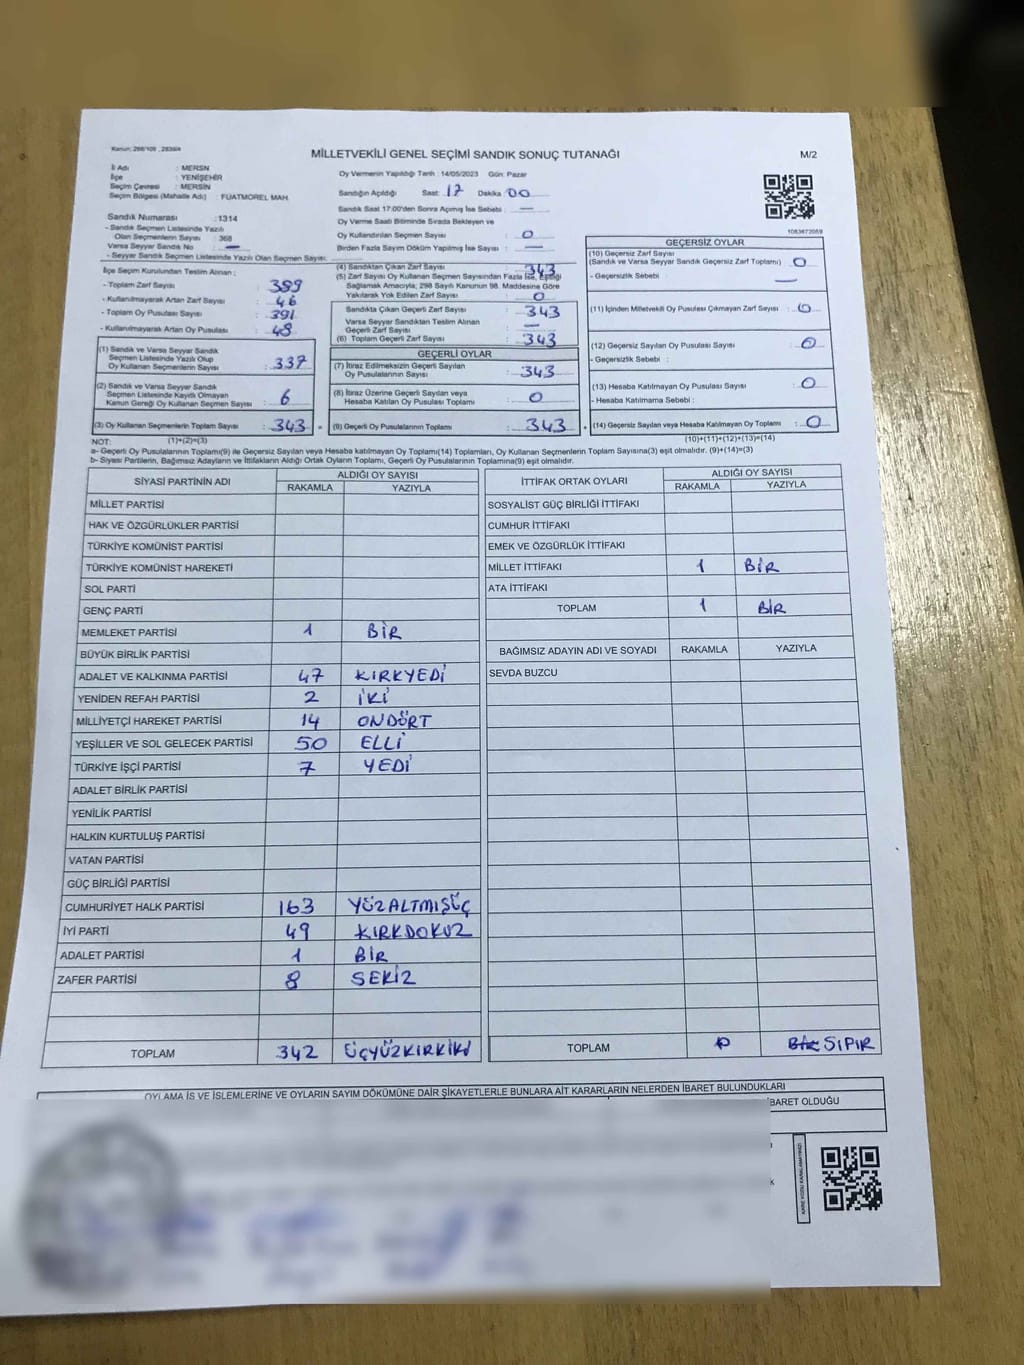 MİLLETVEKİLİ GENEL SEÇİMİ SANDIK SONUÇ TUTANAĞI
M/2
İl Adı : MERSİN
İlçe : YENİŞEHİR
Seçim Çevresi : MERSİN
Seçim Bölgesi (Mahalle Adı) : FUATMOREL MAH.
Sandık Numarası : 1314
- Sandık Seçmen Listesinde Yazılı
Olan Seçmenlerin Sayısı : 368
Varsa Seyyar Sandık No —
- Seyyar Sandık Seçmen Listesinde Yazılı Olan Seçmen Sayısı:
Oy Vermenin Yapıldığı Tarih : 14/05/2023 Gün: Pazar
Sandığın Açıldığı Saat: 17 Dakika 00
Sandık Saat 17:00'den Sonra Açımış İse Sebebi : —
Oy Verme Saati Bitiminde Sırada Bekleyen ve
Oy Kullandırılan Seçmen Sayısı : 0
Birden Fazla Sayım Döküm Yapılmış İse Sayısı : —
1083672059
İlçe Seçim Kurulundan Teslim Alınan ;
- Toplam Zarf Sayısı : 389
- Kullanılmayarak Artan Zarf Sayısı : 46
- Toplam Oy Pusulası Sayısı : 391
- Kullanılmayarak Artan Oy Pusulası : 48
(1) Sandık ve Varsa Seyyar Sandık
Seçmen Listesinde Yazılı Olup
Oy Kullanan Seçmenlerin Sayısı : 337
(2) Sandık ve Varsa Seyyar Sandık
Seçmen Listesinde Kayıtlı Olmayan
Kanun Gereği Oy Kullanan Seçmen Sayısı : 6
(3) Oy Kullanan Seçmenlerin Toplam Sayısı : 343 =
(4) Sandıktan Çıkan Zarf Sayısı : 343
(5) Zarf Sayısı Oy Kullanan Seçmen Sayısından Fazla İse, Eşitliği
Sağlamak Amacıyla; 298 Sayılı Kanunun 98. Maddesine Göre
Yakılarak Yok Edilen Zarf Sayısı : 0
Sandıkta Çıkan Geçerli Zarf Sayısı : 343
Varsa Seyyar Sandıktan Teslim Alınan
Geçerli Zarf Sayısı : —
(6) Toplam Geçerli Zarf Sayısı : 343
GEÇERLİ OYLAR
(7) İtiraz Edilmeksizin Geçerli Sayılan
Oy Pusulalarının Sayısı : 343
(8) İtiraz Üzerine Geçerli Sayılan veya
Hesaba Katılan Oy Pusulası Toplamı : 0
(9) Geçerli Oy Pusulalarının Toplamı : 343 +
GEÇERSİZ OYLAR
(10) Geçersiz Zarf Sayısı
(Sandık ve Varsa Seyyar Sandık Geçersiz Zarf Toplamı) : 0
- Geçersizlik Sebebi : —
(11) İçinden Milletvekili Oy Pusulası Çıkmayan Zarf Sayısı : 0
(12) Geçersiz Sayılan Oy Pusulası Sayısı : 0
- Geçersizlik Sebebi :
(13) Hesaba Katılmayan Oy Pusulası Sayısı : 0
- Hesaba Katılmama Sebebi :
(14) Geçersiz Sayılan veya Hesaba Katılmayan Oy Toplamı : 0
NOT: (1)+(2)=(3) (10)+(11)+(12)+(13)=(14)
a- Geçerli Oy Pusulalarının Toplamı(9) ile Geçersiz Sayılan veya Hesaba katılmayan Oy Toplamı(14) Toplamları, Oy Kullanan Seçmenlerin Toplam Sayısına(3) eşit olmalıdır. (9)+(14)=(3)
b- Siyasi Partilerin, Bağımsız Adayların ve İttifakların Aldığı Ortak Oyların Toplamı, Geçerli Oy Pusulalarının Toplamına(9) eşit olmalıdır.
SİYASİ PARTİNİN ADI ALDIĞI OY SAYISI
RAKAMLA YAZIYLA
MİLLET PARTİSİ
HAK VE ÖZGÜRLÜKLER PARTİSİ
TÜRKİYE KOMÜNİST PARTİSİ
TÜRKİYE KOMÜNİST HAREKETİ
SOL PARTİ
GENÇ PARTİ
MEMLEKET PARTİSİ 1 BİR
BÜYÜK BİRLİK PARTİSİ
ADALET VE KALKINMA PARTİSİ 47 KIRKYEDİ
YENİDEN REFAH PARTİSİ 2 İKİ
MİLLİYETÇİ HAREKET PARTİSİ 14 ONDÖRT
YEŞİLLER VE SOL GELECEK PARTİSİ 50 ELLİ
TÜRKİYE İŞÇİ PARTİSİ 7 YEDİ
ADALET BİRLİK PARTİSİ
YENİLİK PARTİSİ
HALKIN KURTULUŞ PARTİSİ
VATAN PARTİSİ
GÜÇ BİRLİĞİ PARTİSİ
CUMHURİYET HALK PARTİSİ 163 YÜZALTMIŞÜÇ
İYİ PARTİ 49 KIRKDOKUZ
ADALET PARTİSİ 1 BİR
ZAFER PARTİSİ 8 SEKİZ
TOPLAM 342 ÜÇYÜZKIRKİKİ
İTTİFAK ORTAK OYLARI ALDIĞI OY SAYISI
RAKAMLA YAZIYLA
SOSYALİST GÜÇ BİRLİĞİ İTTİFAKI
CUMHUR İTTİFAKI
EMEK VE ÖZGÜRLÜK İTTİFAKI
MİLLET İTTİFAKI 1 BİR
ATA İTTİFAKI
TOPLAM 1 BİR
BAĞIMSIZ ADAYIN ADI VE SOYADI RAKAMLA YAZIYLA
SEVDA BUZCU
TOPLAM 0 SIFIR
OYLAMA İŞ VE İŞLEMLERİNE VE OYLARIN SAYIM DÖKÜMÜNE DAİR ŞİKAYETLERLE BUNLARA AİT KARARLARIN NELERDEN İBARET BULUNDUKLARI
İBARET OLDUĞU
KARE KODU KARALAMAYINIZ!